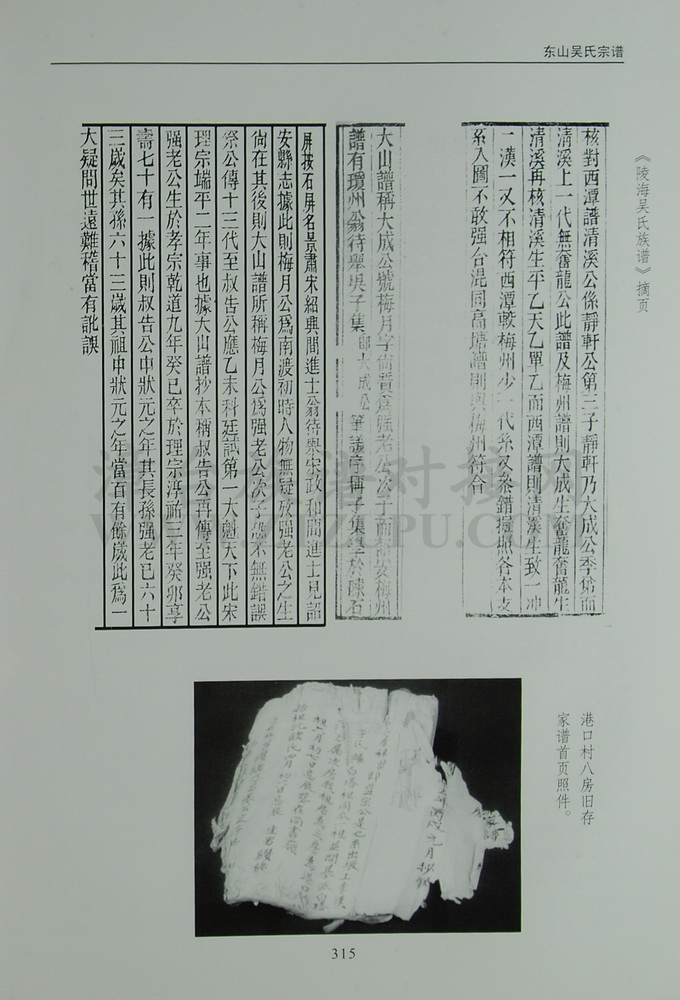 东山吴氏宗谱
《陵海吴氏族谱》摘页
核對西潭譜清溪公係靜軒公第三子靜軒乃大成公季裔而
清溪上一代無奮龍公此譜及梅州譜則大成生奮龍奮龍生
清溪再核清溪生平乙天乙單乙而西潭譜則清溪生致一冲
一漢一又不相符西潭較梅州少一代系又參錯據照各本支
系入圖不敢强合混同高塘譜則與梅州符合
大山譜稱大成公號梅月字尚賢爲强老公次子而詔安梅州
譜有瓊州翁待舉吳子集 即大成公 筆議序稱子集學於陳石
屏按石屏名景肅宋紹興間進士翁待舉宋政和間進士見詔
安縣志據此則梅月公爲南渡初時人物無疑攷强老公之生
尚在其後則大山譜所稱梅月公爲强老公次子恐不無錯誤
祭公傳十三代至叔告公應乙未科廷試第一大魁天下此宋
理宗端平二年事也據大山譜抄本稱叔告公再傳至强老公
强老公生於孝宗乾道九年癸巳卒於理宗淳祐三年癸卯享
壽七十有一據此則叔告公中狀元之年其長孫强老已六十
三歲矣其孫六十三歲其祖中狀元之年當百有餘歲此爲一
大疑問世遠難稽當有訛誤
港口村八房旧存
家谱首页照件。
315